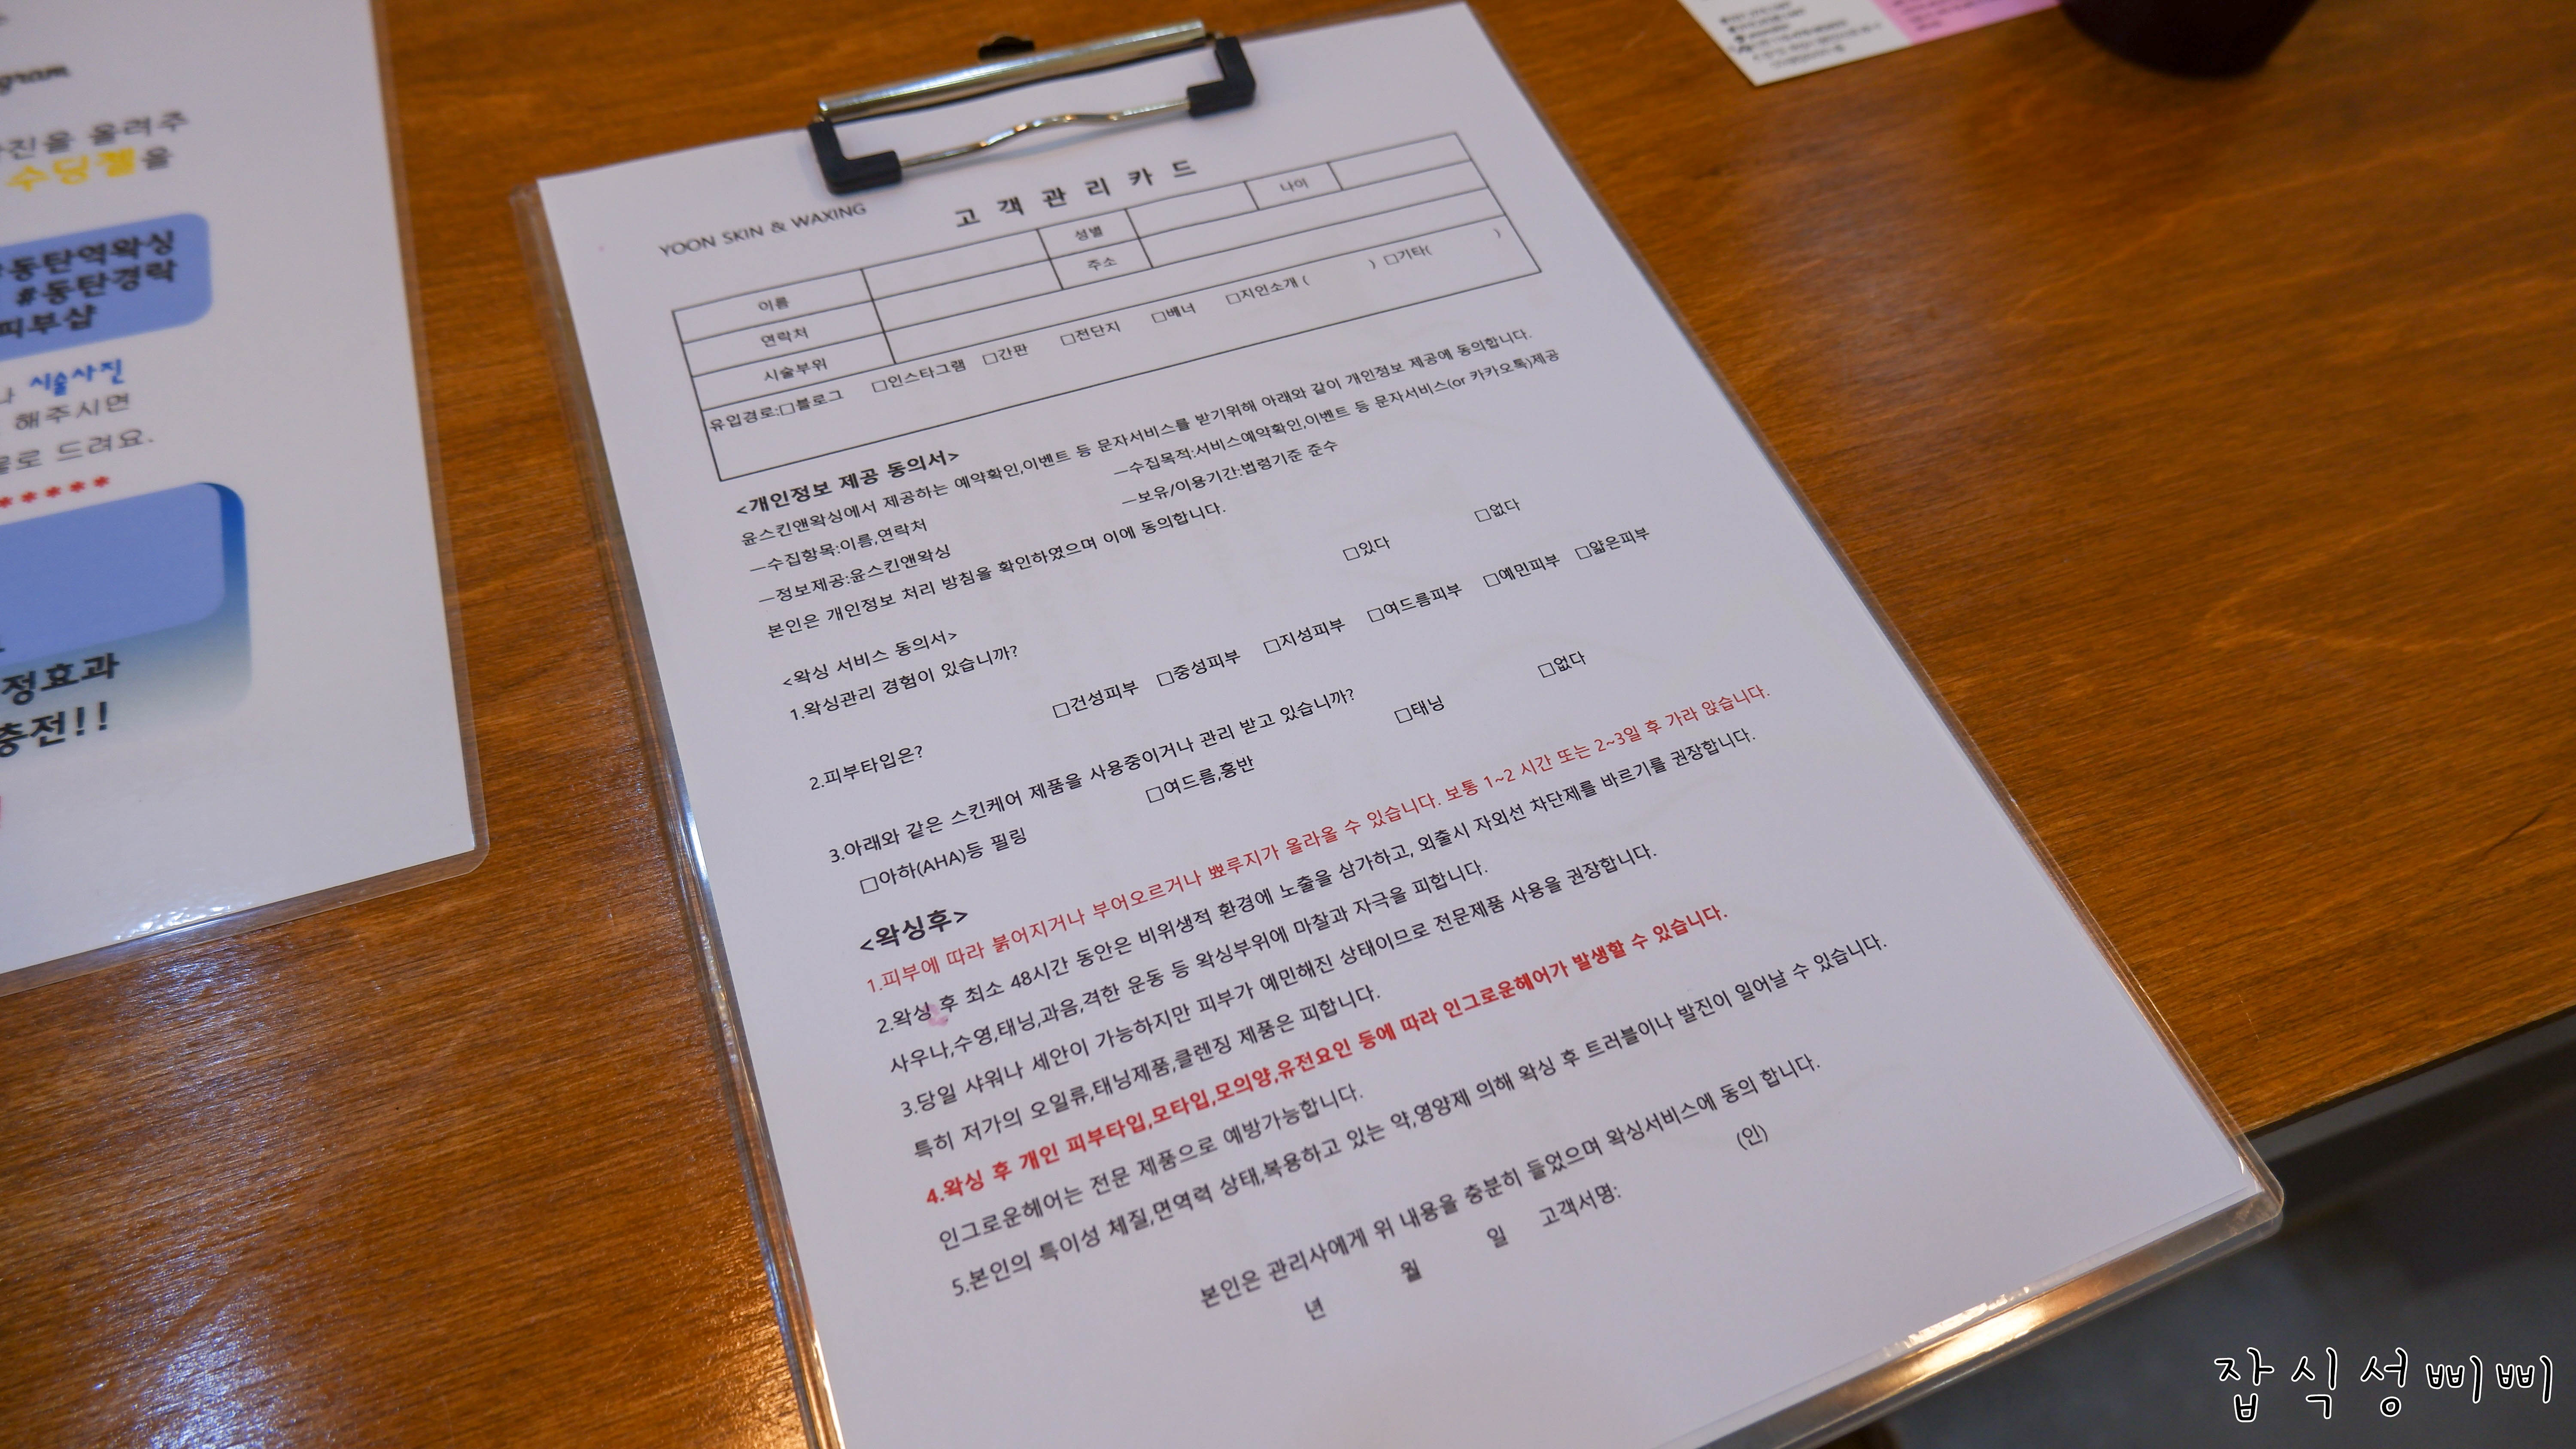 gram
진을 올려주
수딩젤을
동탄역왁싱
#동탄경락
피부샵
시술사진
해주시면
로 드려요.
*****
정효과
충전!!
YOON SKIN & WAXING
고객관리카드
이름 성별 나이
연락처 주소
시술부위
유입경로:□블로그 □인스타그램 □간판 □전단지 □베너 □지인소개 ( ) □기타( )
<개인정보 제공 동의서>
윤스킨앤왁싱에서 제공하는 예약확인,이벤트 등 문자서비스를 받기위해 아래와 같이 개인정보 제공에 동의합니다.
—수집항목:이름,연락처 —수집목적:서비스예약확인,이벤트 등 문자서비스(or 카카오톡)제공
—정보제공:윤스킨앤왁싱 —보유/이용기간:법령기준 준수
본인은 개인정보 처리 방침을 확인하였으며 이에 동의합니다.
<왁싱 서비스 동의서>
1.왁싱관리 경험이 있습니까? □있다 □없다
2.피부타입은? □건성피부 □중성피부 □지성피부 □여드름피부 □예민피부 □얇은피부
3.아래와 같은 스킨케어 제품을 사용중이거나 관리 받고 있습니까?
□아하(AHA)등 필링 □여드름,홍반 □태닝 □없다
<왁싱후>
1.피부에 따라 붉어지거나 부어오르거나 뾰루지가 올라올 수 있습니다. 보통 1~2 시간 또는 2~3일 후 가라 앉습니다.
2.왁싱 후 최소 48시간 동안은 비위생적 환경에 노출을 삼가하고, 외출시 자외선 차단제를 바르기를 권장합니다.
사우나,수영,태닝,과음,격한 운동 등 왁싱부위에 마찰과 자극을 피합니다.
3.당일 샤워나 세안이 가능하지만 피부가 예민해진 상태이므로 전문제품 사용을 권장합니다.
특히 저가의 오일류,태닝제품,클렌징 제품은 피합니다.
4.왁싱 후 개인 피부타입,모타입,모의양,유전요인 등에 따라 인그로운헤어가 발생할 수 있습니다.
인그로운헤어는 전문 제품으로 예방가능합니다.
5.본인의 특이성 체질,면역력 상태,복용하고 있는 약,영양제 의해 왁싱 후 트러블이나 발진이 일어날 수 있습니다.
본인은 관리사에게 위 내용을 충분히 들었으며 왁싱서비스에 동의 합니다.
년 월 일 고객서명: (인)
잡식성삐삐